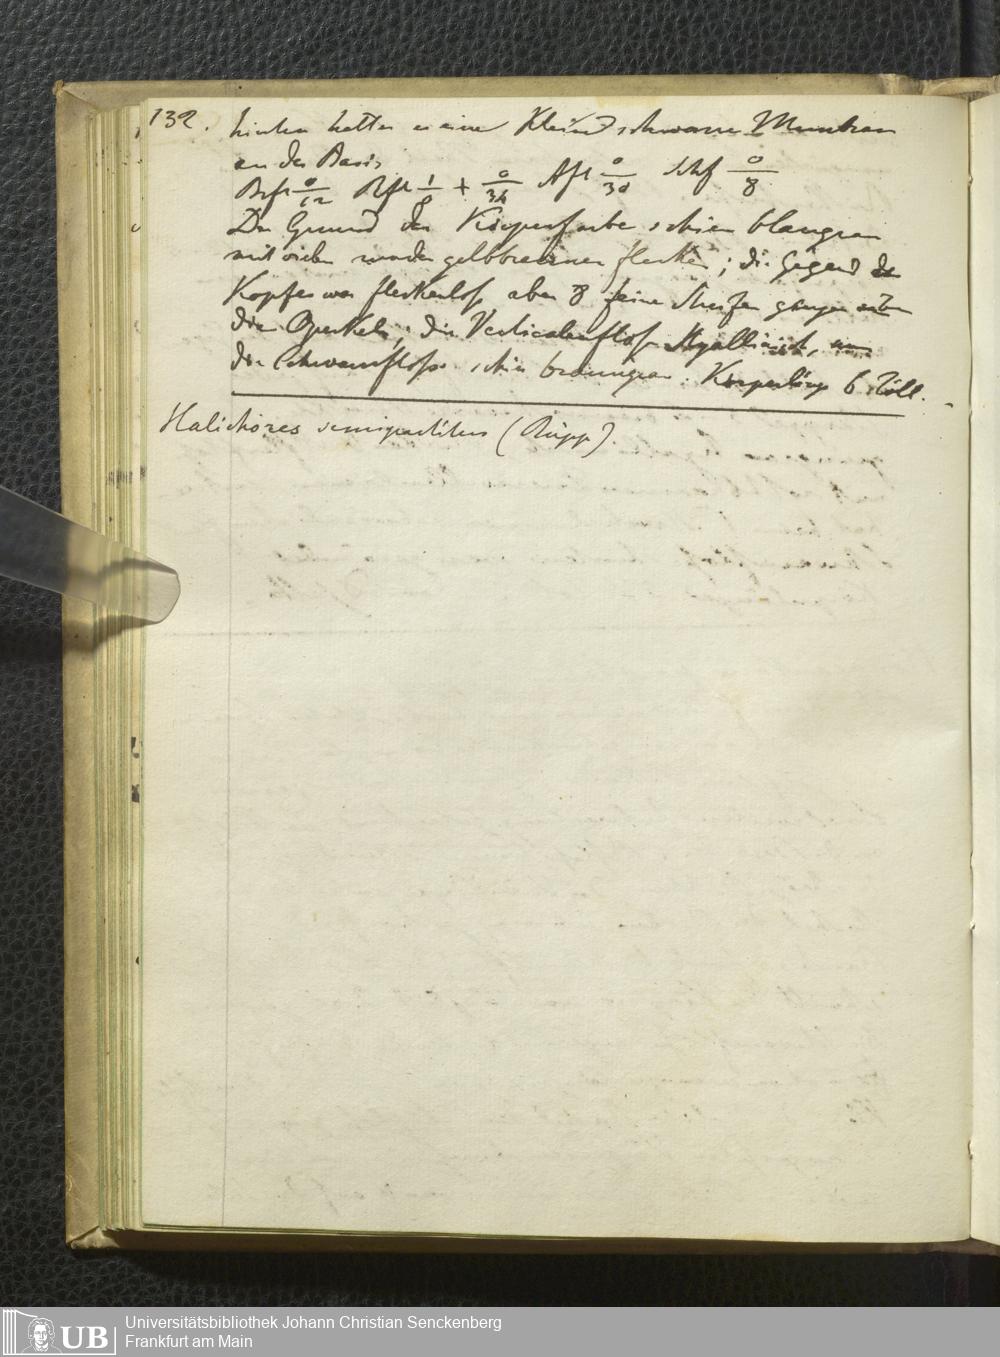 132.
hinten hatte er eine Kleine schwarze Membran
an der Basis
Brfl 0/12 Rfl 1/8 + 0/34 Afl 0/30 Schf 0/8
Der Grund der Körperfarbe schien blaugrau
mit vielen runden gelbbraunen flecken; die Gegend des
Kopfes war fleckenlos aber 8 feine Streifen gingen
die Operkeln; die Verticalenflosse Hyallinisch, nur
die Schwanzflosse schien braungrau. Körperlänge 6 Zoll.
Halichores semipartitus (Rüpp).
UB
Universitätsbibliothek Johann Christian Senckenberg
Frankfurt am Main